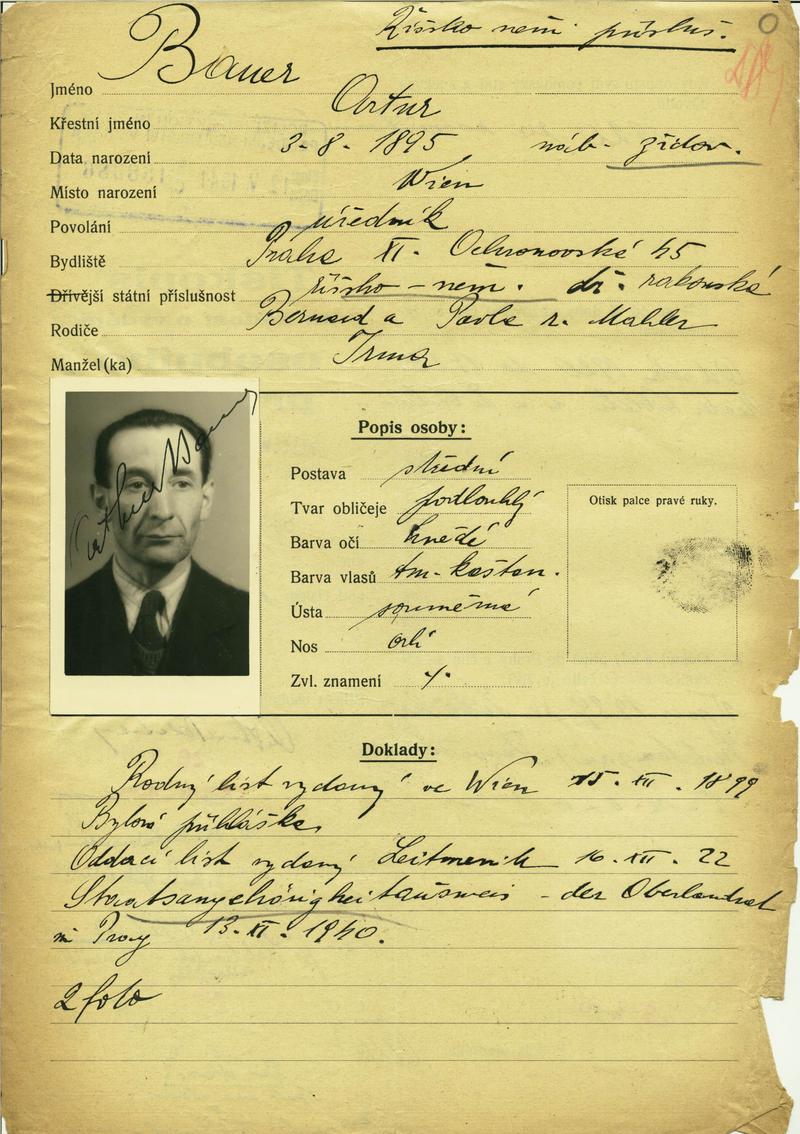 Říšsko něm. přísluš.
Jméno Bauer
Křestní jméno Artur
Data narození 3. 8. 1895 náb. židov.
Místo narození Wien
Povolání úředník
Bydliště Praha XI. Ochranovská 45
Dřívější státní příslušnost říšsko-něm. dř. rakouská
Rodiče a Pavla r. Mahler
Manžel (ka) Irma
Popis osoby:
Postava střední
Tvar obličeje podlouhlý
Barva očí hnědé
Barva vlasů tm-kaštan.
Ústa souměrná
Nos orlí
Zvl. znamení ·/·
Otisk palce pravé ruky.
Doklady:
Rodný list vydaný ve Wien 15. XII. 1899
přihláška
Oddací list vydaný 16. XII. 22
Staatsangehörigkeitausweis - der Oberlandrat
in Prag 13. XI. 1940.
2 foto